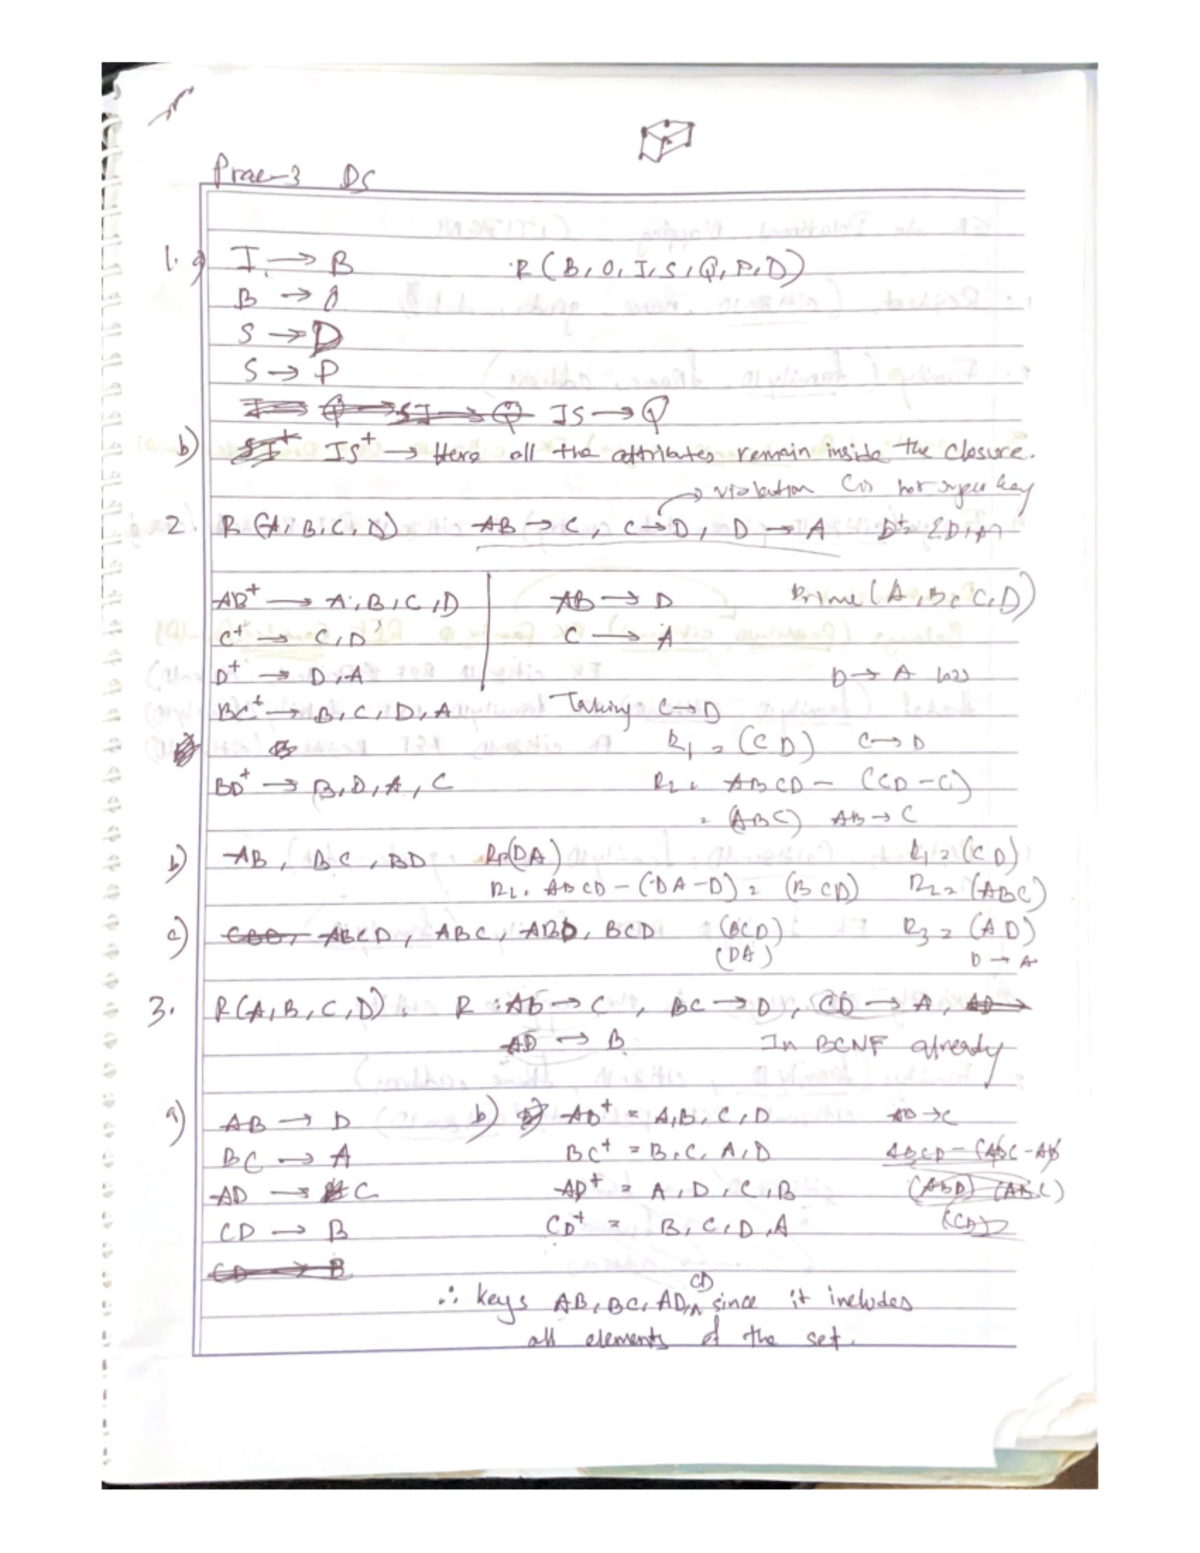 Prac-3 DS
1. a) I → B R (B, O, I, S, Q, P, D)
B → O
S → D
S → P
IS → Q
b) IS⁺ → Here all the attributes remain inside the closure.
→ violation C is not super key
2. R (A, B, C, D) AB → C, C → D, D → A D⁺ = {D, A}
AB⁺ → A, B, C, D AB → D Prime (A, B, C, D)
C⁺ → C, D C → A
D⁺ → D, A D → A loss
BC⁺ → B, C, D, A Taking C → D
R₁ = (C D) C → D
BD⁺ → B, D, A, C R₂ = ABCD - (CD - C)
= (ABC) AB → C
b) AB, BC, BD R₁(DA) R₁ = (CD)
R₂. ABCD - (DA - D) = (BCD) R₂ = (ABC)
c) ABCD, ABC, ABD, BCD (BCD) R₃ = (AD)
(DA) D → A
3. R(A, B, C, D). R : AB → C, BC → D, CD → A,
AD → B In BCNF already
a) AB → D b) AB⁺ = A, B, C, D AD → C
BC → A BC⁺ = B, C, A, D ABCD - (ABC - AB
AD → C AD⁺ = A, D, C, B (ABD) (ABC)
CD → B CD⁺ = B, C, D, A (CD)
CD → B
∴ keys AB, BC, AD, CD since it includes
all elements of the set.